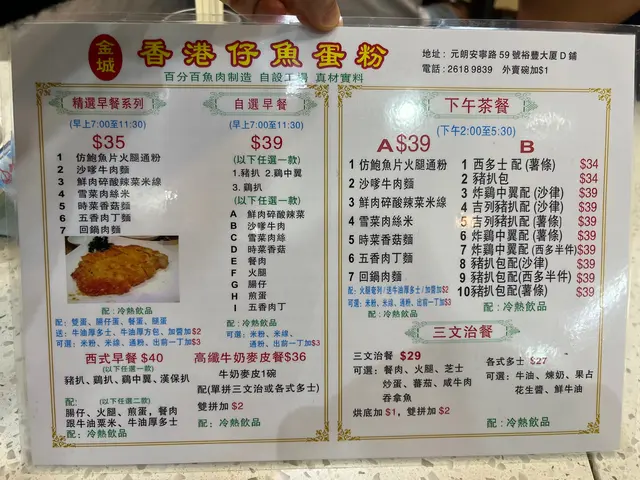 金城
香港仔魚蛋粉
百分百魚肉制造 自設工場 真材實料
地址：元朗安寧路 59 號裕豐大厦 D 鋪
電話：2618 9839 外賣碗加$1
精選早餐系列
(早上7:00至11:30)
$35
1 仿鮑魚片火腿通粉
2 沙嗲牛肉麵
3 鮮肉碎酸辣菜米線
4 雪菜肉絲米
5 時菜香菇麵
6 五香肉丁麵
7 回鍋肉麵
配：冷熱飲品
配：雙蛋、腸仔蛋、餐蛋、腿蛋
送：牛油厚多士、牛油厚方包、加醬加$2
可選：米粉、米線、通粉、出前一丁加$3
西式早餐 $40
(以下任選一款)
豬扒、鷄扒、鷄中翼、漢保扒
配： (以下任選二款)
腸仔、火腿、煎蛋，餐肉
跟牛油粟米、牛油厚多士
配：冷熱飲品
自選早餐
(早上7:00至11:30)
$39
(以下任選一款)
1.豬扒 2.鷄中翼
3. 鷄扒
(以下任選一款)
A 鮮肉碎酸辣菜
B 沙嗲牛肉
C 雪菜肉絲
D 時菜香菇
E 餐肉
F 火腿
G 腸仔
H 煎蛋
I 五香肉丁
配：冷熱飲品
可選：米粉、米線、
通粉、出前一丁加$3
高纖牛奶麥皮餐$36
牛奶麥皮1碗
配(單拼三文治或各式多士)
雙拼加 $2
配：冷熱飲品
下午茶餐
(下午2:00至5:30)
A $39
1 仿鮑魚片火腿通粉
2 沙嗲牛肉麵
3 鮮肉碎酸辣菜米線
4 雪菜肉絲米
5 時菜香菇麵
6 五香肉丁麵
7 回鍋肉麵
配：火腿奄列/送牛油厚多士/加醬加$2
可選：米粉、米線、通粉、出前一丁加$3
配：冷熱飲品
B
1 西多士 配 (薯條) $34
2 豬扒包 $34
3 炸鷄中翼配 (沙律) $39
4 吉列豬扒配 (沙律) $39
5 吉列豬扒配 (薯條) $39
6 炸鷄中翼配 (薯條) $39
7 炸鷄中翼配 (西多半件) $39
8 豬扒包配(沙律) $39
9 豬扒包配(西多半件) $39
10豬扒包配(薯條) $39
配：冷熱飲品
三文治餐
三文治餐 $29
可選：餐肉、火腿、芝士
炒蛋、蕃茄、咸牛肉
吞拿魚
烘底加 $1，雙拼加 $2
各式多士 $27
可選：牛油、煉奶、果占
花生醬、鮮牛油
配：冷熱飲品